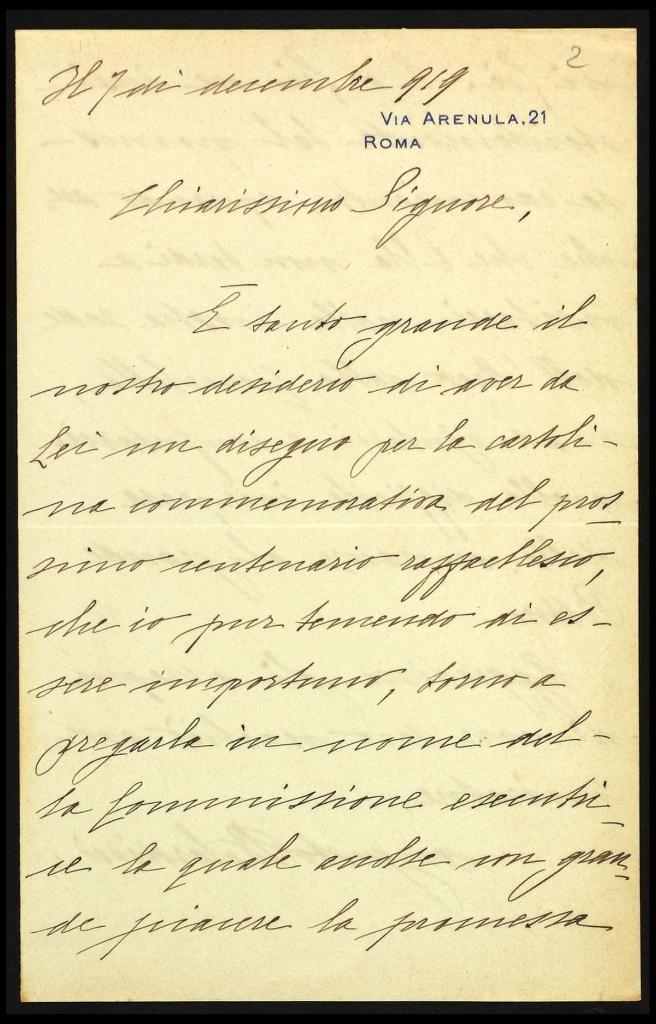 2
Il 7 di decembre 919
VIA ARENULA, 21
ROMA
Chiarissimo Signore,
È tanto grande il
nostro desiderio di aver da
Lei un disegno per la cartoli-
na commemorativa del pros-
simo centenario raffaellesco,
che io pur temendo di es-
sere importuno, torno a
pregarla in nome del-
la Commissione esecutri-
ce la quale accolse con gran-
de piacere la promessa